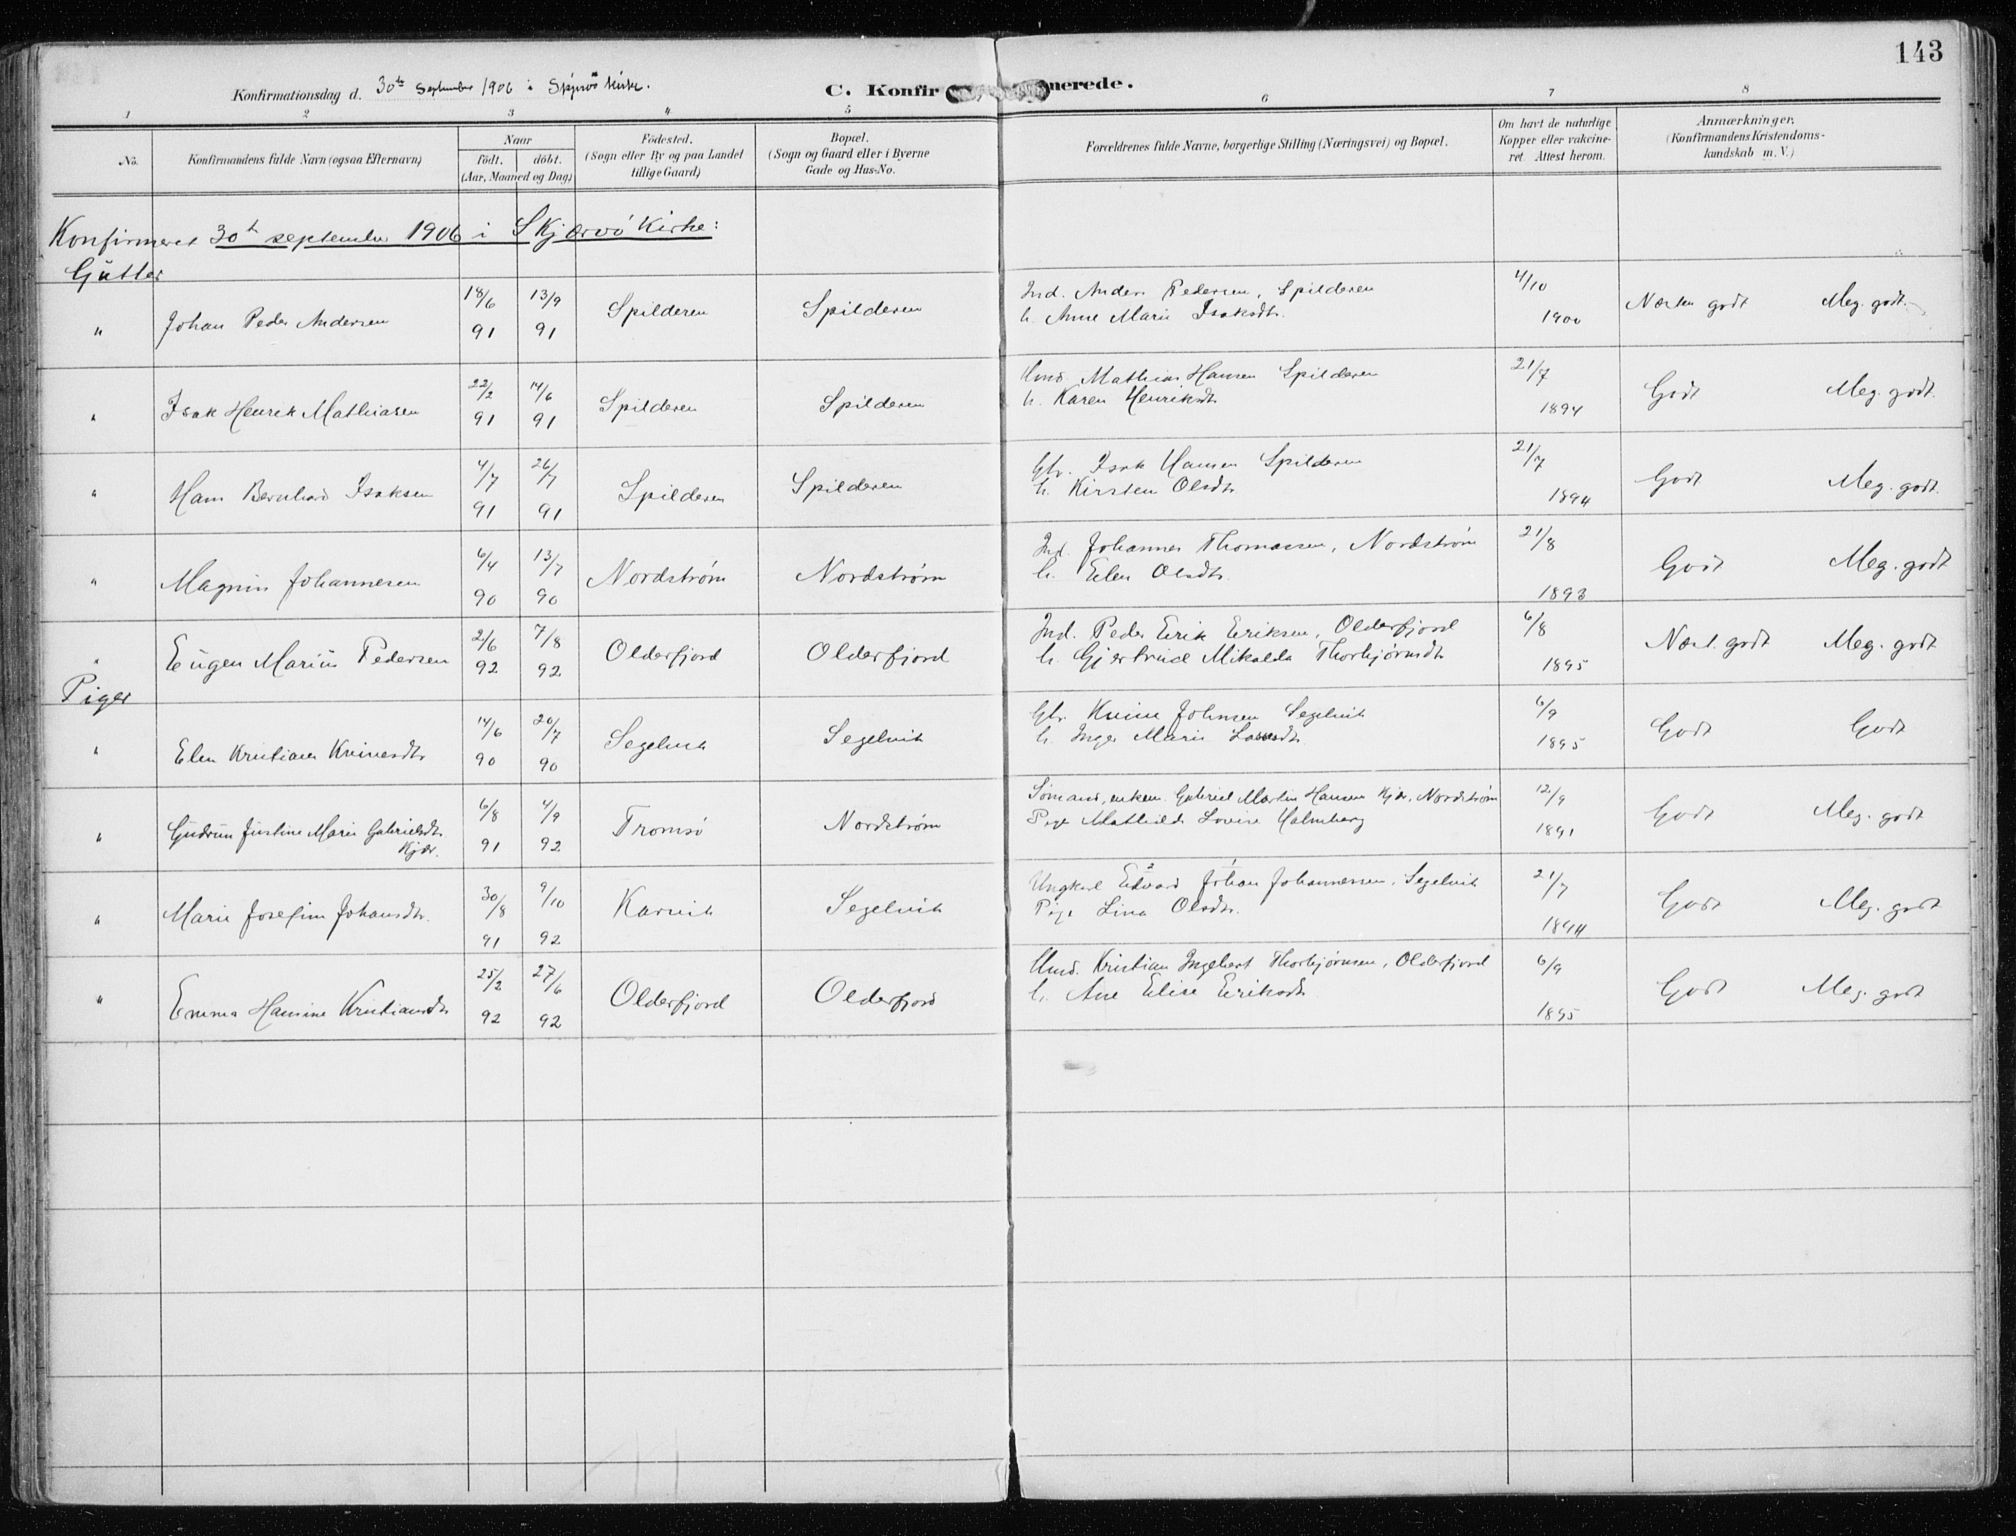 143
Konfirmationsdag d. 30te September 1906 i Skjervø Kirke.
C. Konfir nerede.
1 2 3 4 5 6 7 8
No.
Konfirmandens fulde Navn (ogsaa Efternavn)
Naar
födt. döbt.
(Aar, Maaned og Dag)
Födested.
(Sogn eller By og paa Landet
tillige Gaard)
Bopæl.
(Sogn og Gaard eller i Byerne
Gade og Hus-No.
Forældrenes fulde Navne, borgerlige Stilling (Næringsvei) og Bopæl.
Om havt de naturlige
Kopper eller vakcine-
ret. Attest herom.
Anmærkninger.
(Konfirmandens Kristendoms-
kundskab m. V.)
Konfirmeret 30te september 1906 i Skjærvö Kirke:
Gutter
" Johan Peder Andersen 18/6 91 13/9 91 Spilderen Spilderen
Ind. Anders Pedersen, Spilderen
h. Anne Marie Isaksdtr. 4/10 1900 Næsten godt Meg. godt.
" Isak Henrik Mathiasen 22/2 91 14/6 91 Spilderen Spilderen
Mathias Hansen Spilderen
h. Karen Henriksdtr 21/7 1894 Godt Meg. godt.
" Hans Bernhard Isaksen 4/7 91 26/7 91 Spilderen Spilderen
Gbr. Isak Hansen Spilderen
h. Kirsten Olsdtr 21/7 1894 Godt Meg. godt.
" Magnus Johannesen 6/4 90 13/7 90 Nordstrøm Nordstrøm
Ind. Johannes Thomassen, Nordstrøm
h. Elen Olsdtr. 21/8 1893 Godt Meg. godt
" Eugen Marius Pedersen 2/6 92 7/8 92 Olderfjord Olderfjord
Ind. Peder Erik Eriksen, Olderfjord
h. Gjertrud Mikalda Thorbjørnsdtr 6/8 1895 Næst. godt Meg. godt
Piger
" Elen Kristianna Kvinesdtr 14/6 90 20/7 90 Segelvik Segelvik
Gbr. Kvine Johnsen Segelvik
h. Inger Marie Lassesdtr. 6/9 1895 Godt Godt
" Gudrun Justine Marie Gabrielsdtr
Kjær. 6/8 91 4/9 92 Tromsö Nordström
Sømand, enkem. Gabriel Martin Hansen Kjær, Nordstrøm
Pige Mathilde Lovise Halmberg 12/9 1891 Godt Meg. godt
" Marie Josefine Johansdtr. 30/8 91 9/10 92 Karvik Segelvik
Ungkarl Edvard Johan Johannessen, Segelvik
Pige Lina Olsdtr. 21/7 1894 Godt Meg. godt
" Emma Hansine Kristiansdtr 25/2 92 27/6 92 Olderfjord Olderfjord
Kristian Ingebert Thorbjørnsen, Olderfjord
h. Ane Elise Eriksdtr 6/9 1895 Godt Meg. godt